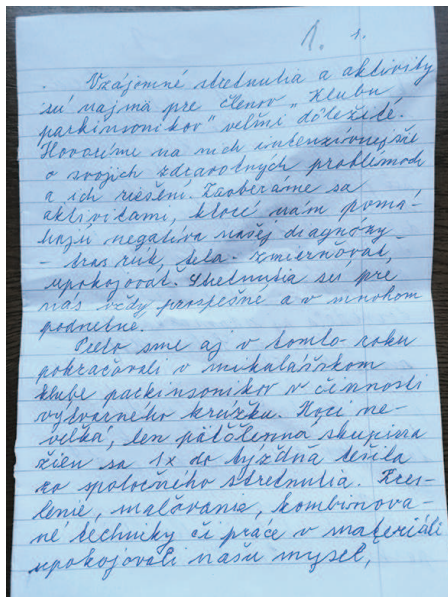 1. s.
Vzájomné stretnutia a aktivity
sú najmä pre členov "Klubu
parkinsonikov" veľmi dôležité.
Hovoríme na nich intenzívnejšie
o svojich zdravotných problémoch
a ich riešení. Zaoberáme sa
aktivitami, ktoré nám pomá-
hajú negatíva našej diagnózy -
- tras rúk, tela - zmierňovať,
upokojovať. Stretnutia sú pre
nás vždy prospešné a v mnohom
podnetné.
Preto sme aj v tomto roku
pokračovali v mikulášskom
klube parkinsonikov v činnosti
výtvarného krúžku. Hoci ne-
veľká, len päťčlenná skupina
žien sa 1x do týždňa tešila
zo spoločného stretnutia. Kres-
lenie, maľovanie, kombinova-
né techniky či práce v materiáli
upokojovali našu myseľ,